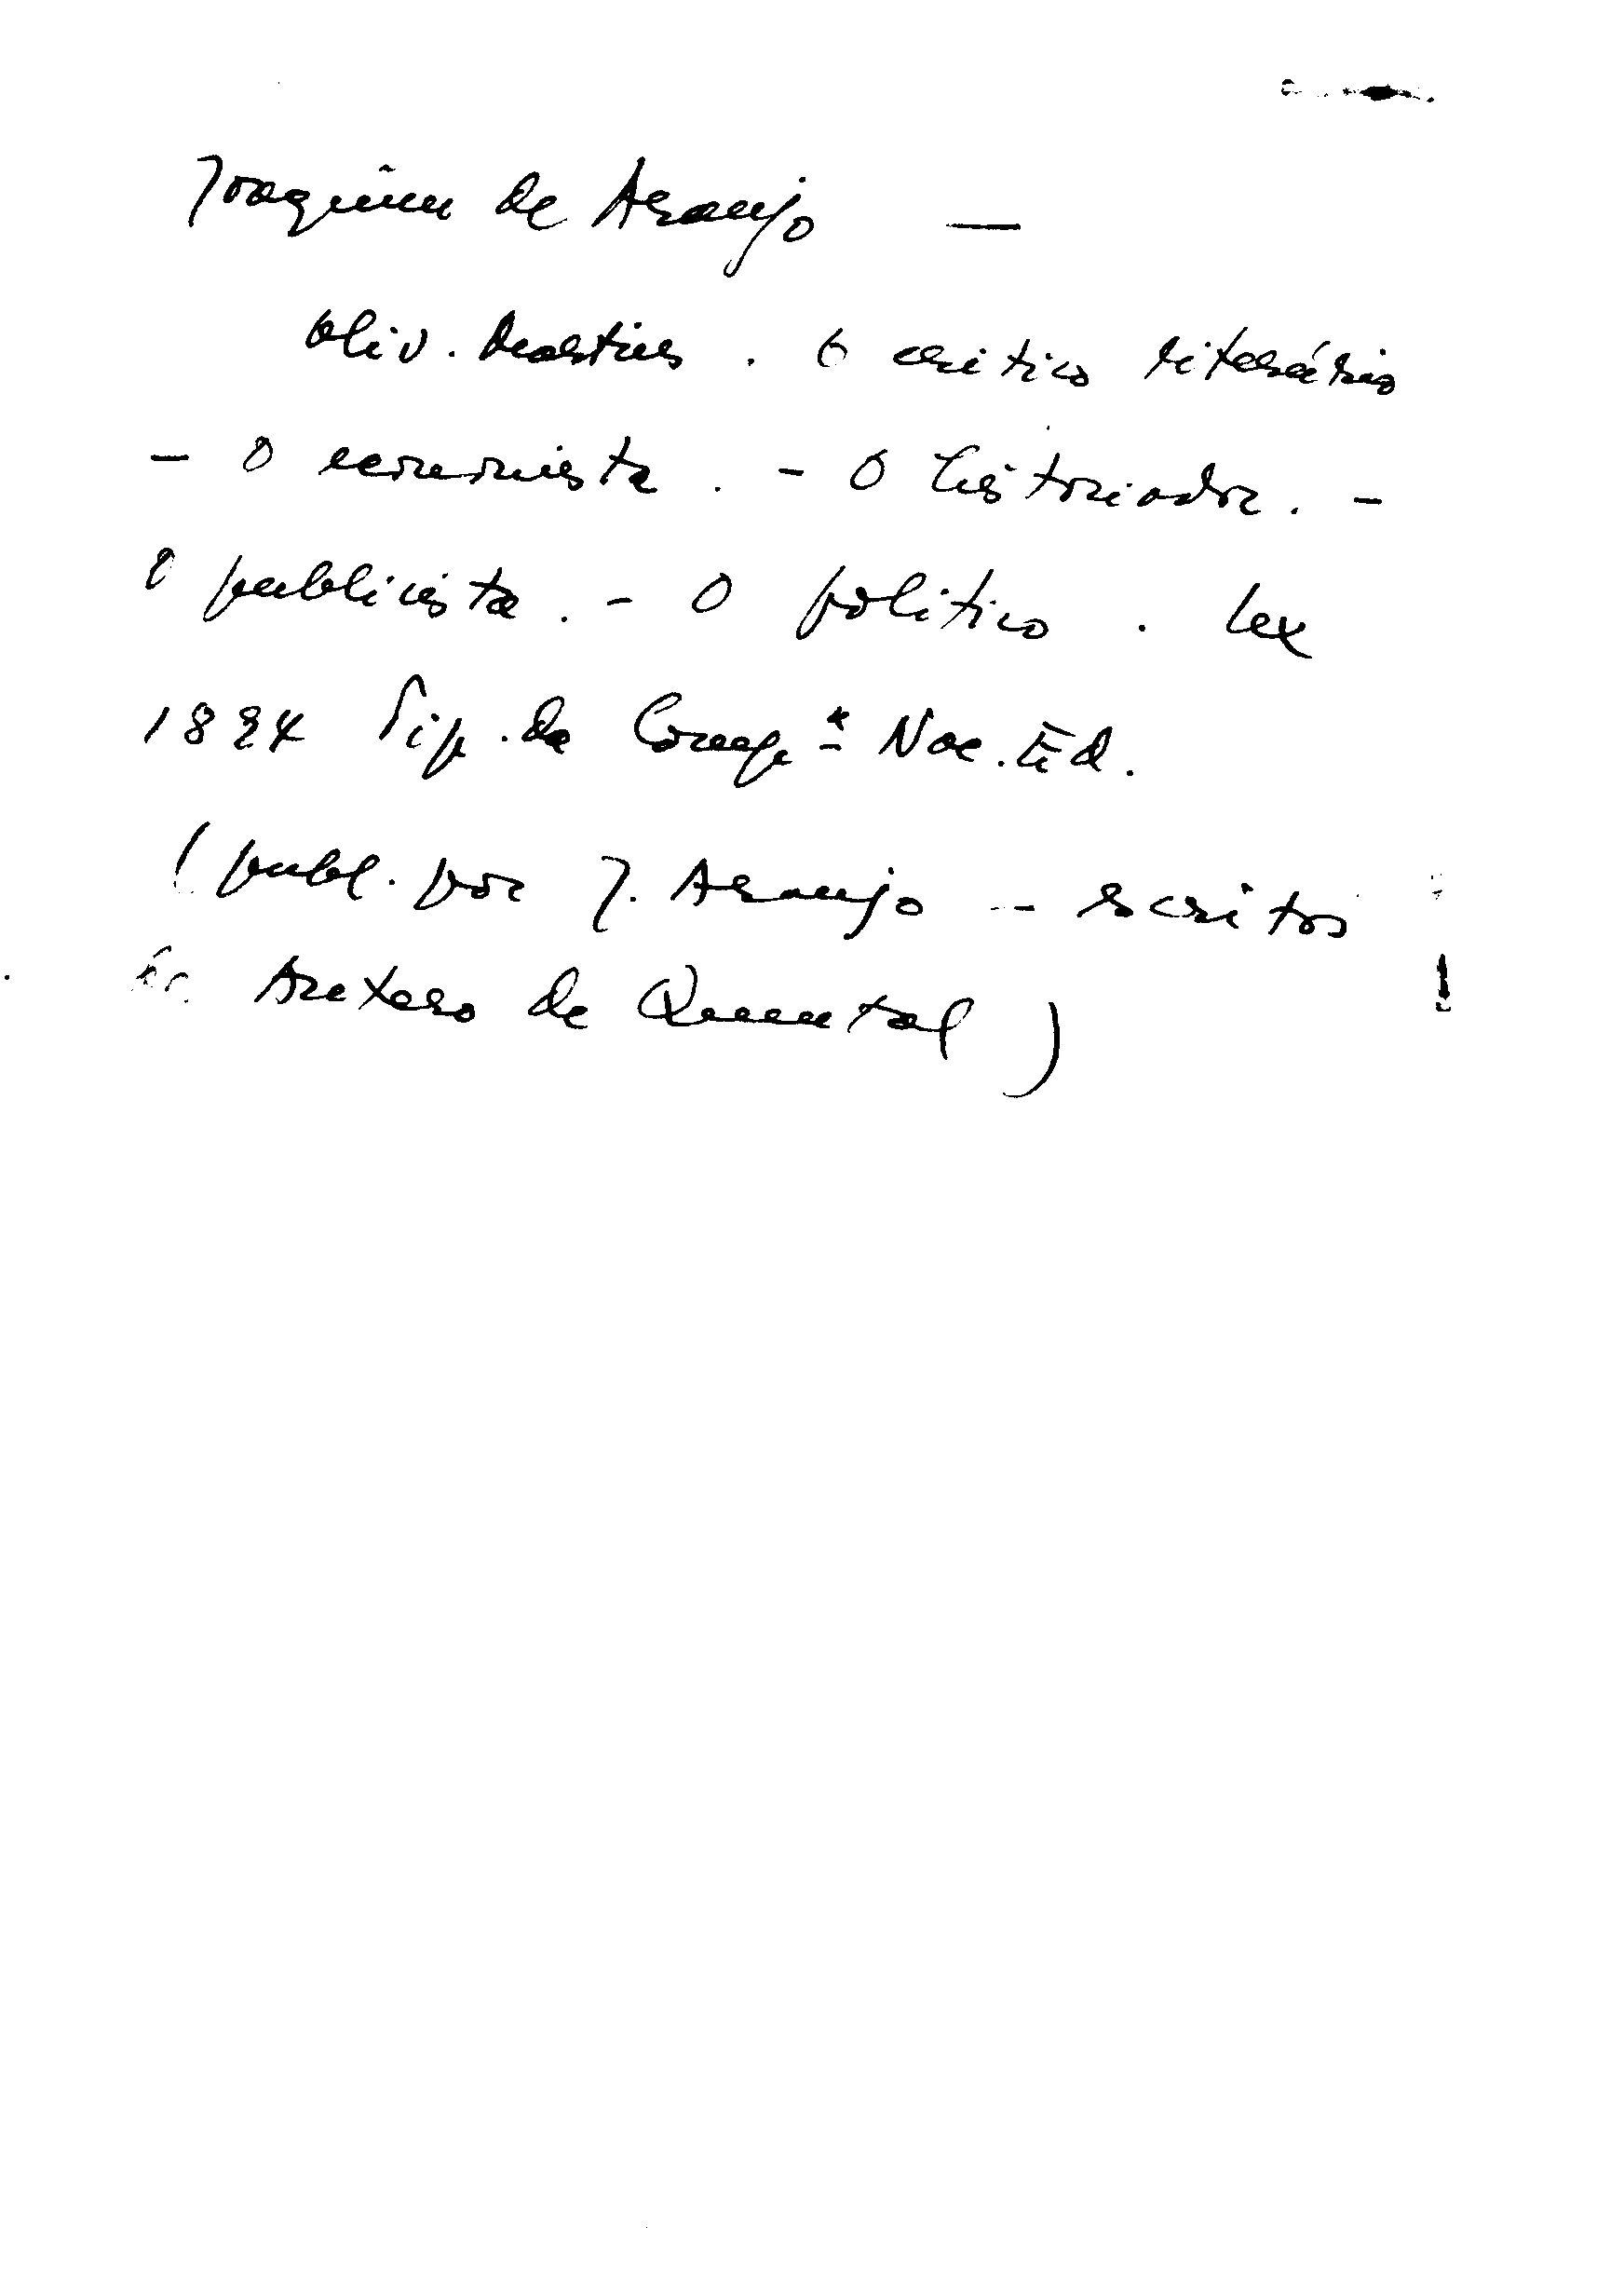 Joaquim de Araujo —
Oliv. Martins. O critico literário
– O economista. – O historiador. –
O publicista. – O politico. Lex
1884 Tip. da Comp.ª Nac. Ed.
(publ. por J. Araujo – escritos
de Antero de Quental)